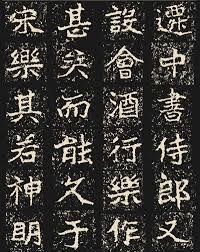 遷中書侍郎又
設會酒行樂作
甚矣而能久于
宋樂其若神明